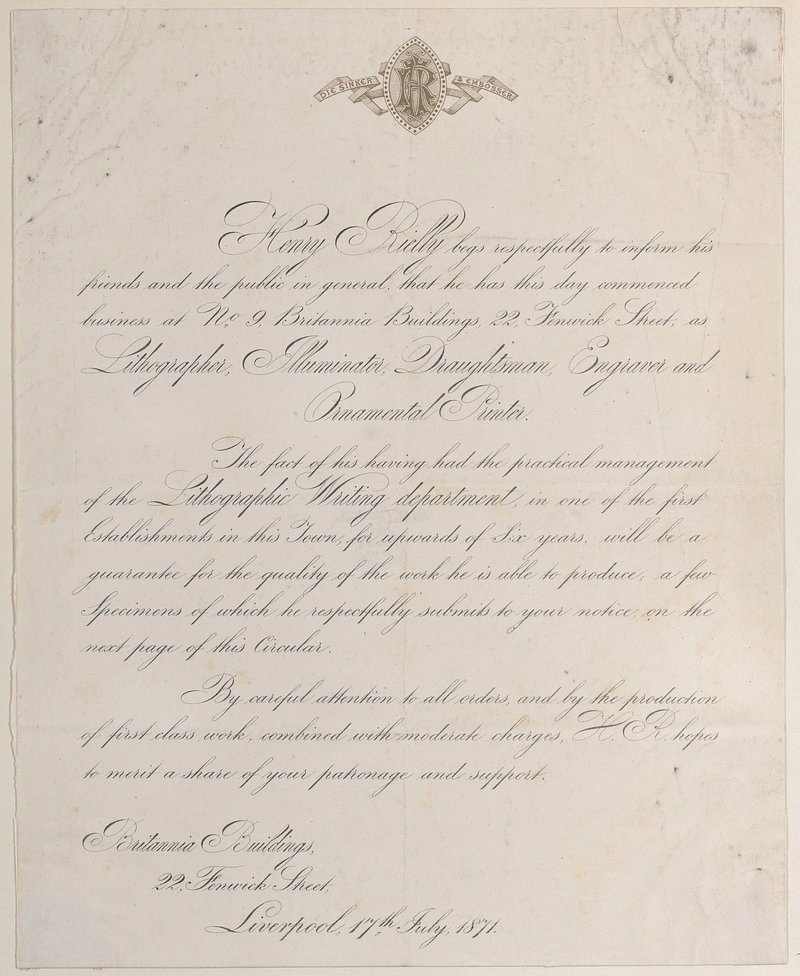 DIE SINKER & EMBOSSER
HR
Henry Rielly begs respectfully to inform his
friends and the public in general, that he has this day commenced
business at No. 9, Britannia Buildings, 22, Fenwick Street, as
Lithographer, Illuminator, Draughtsman, Engraver and
Ornamental Printer.
The fact of his having had the practical management
of the Lithographic Writing department, in one of the first
Establishments in this Town, for upwards of Six years, will be a
guarantee for the quality of the work he is able to produce, a few
Specimens of which he respectfully submits to your notice, on the
next page of this Circular.
By careful attention to all orders, and by the production
of first class work, combined with moderate charges, H. R. hopes
to merit a share of your patronage and support.
Britannia Buildings,
22, Fenwick Street,
Liverpool, 17th July, 1871.